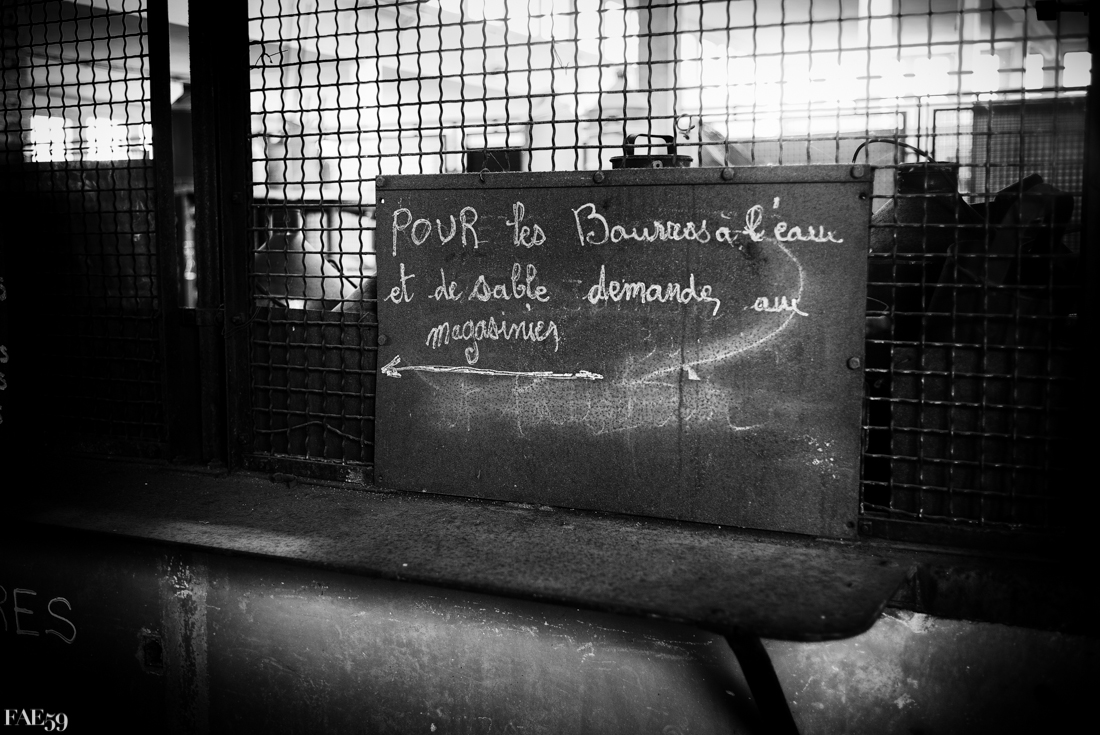 POUR les Bourres à l'eau
et de sable demandez au
magasinier
RES
FAE59